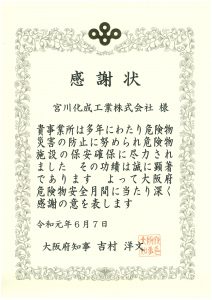 感謝状
宮川化成工業株式会社 様
貴事業所は多年にわたり危険物
災害の防止に努められ危険物
施設の保安確保に尽力され
ました その功績は誠に顕著
であります よって大阪府
危険物安全月間に当たり深く
感謝の意を表します
令和元年6月7日
大阪府知事 吉村 洋文